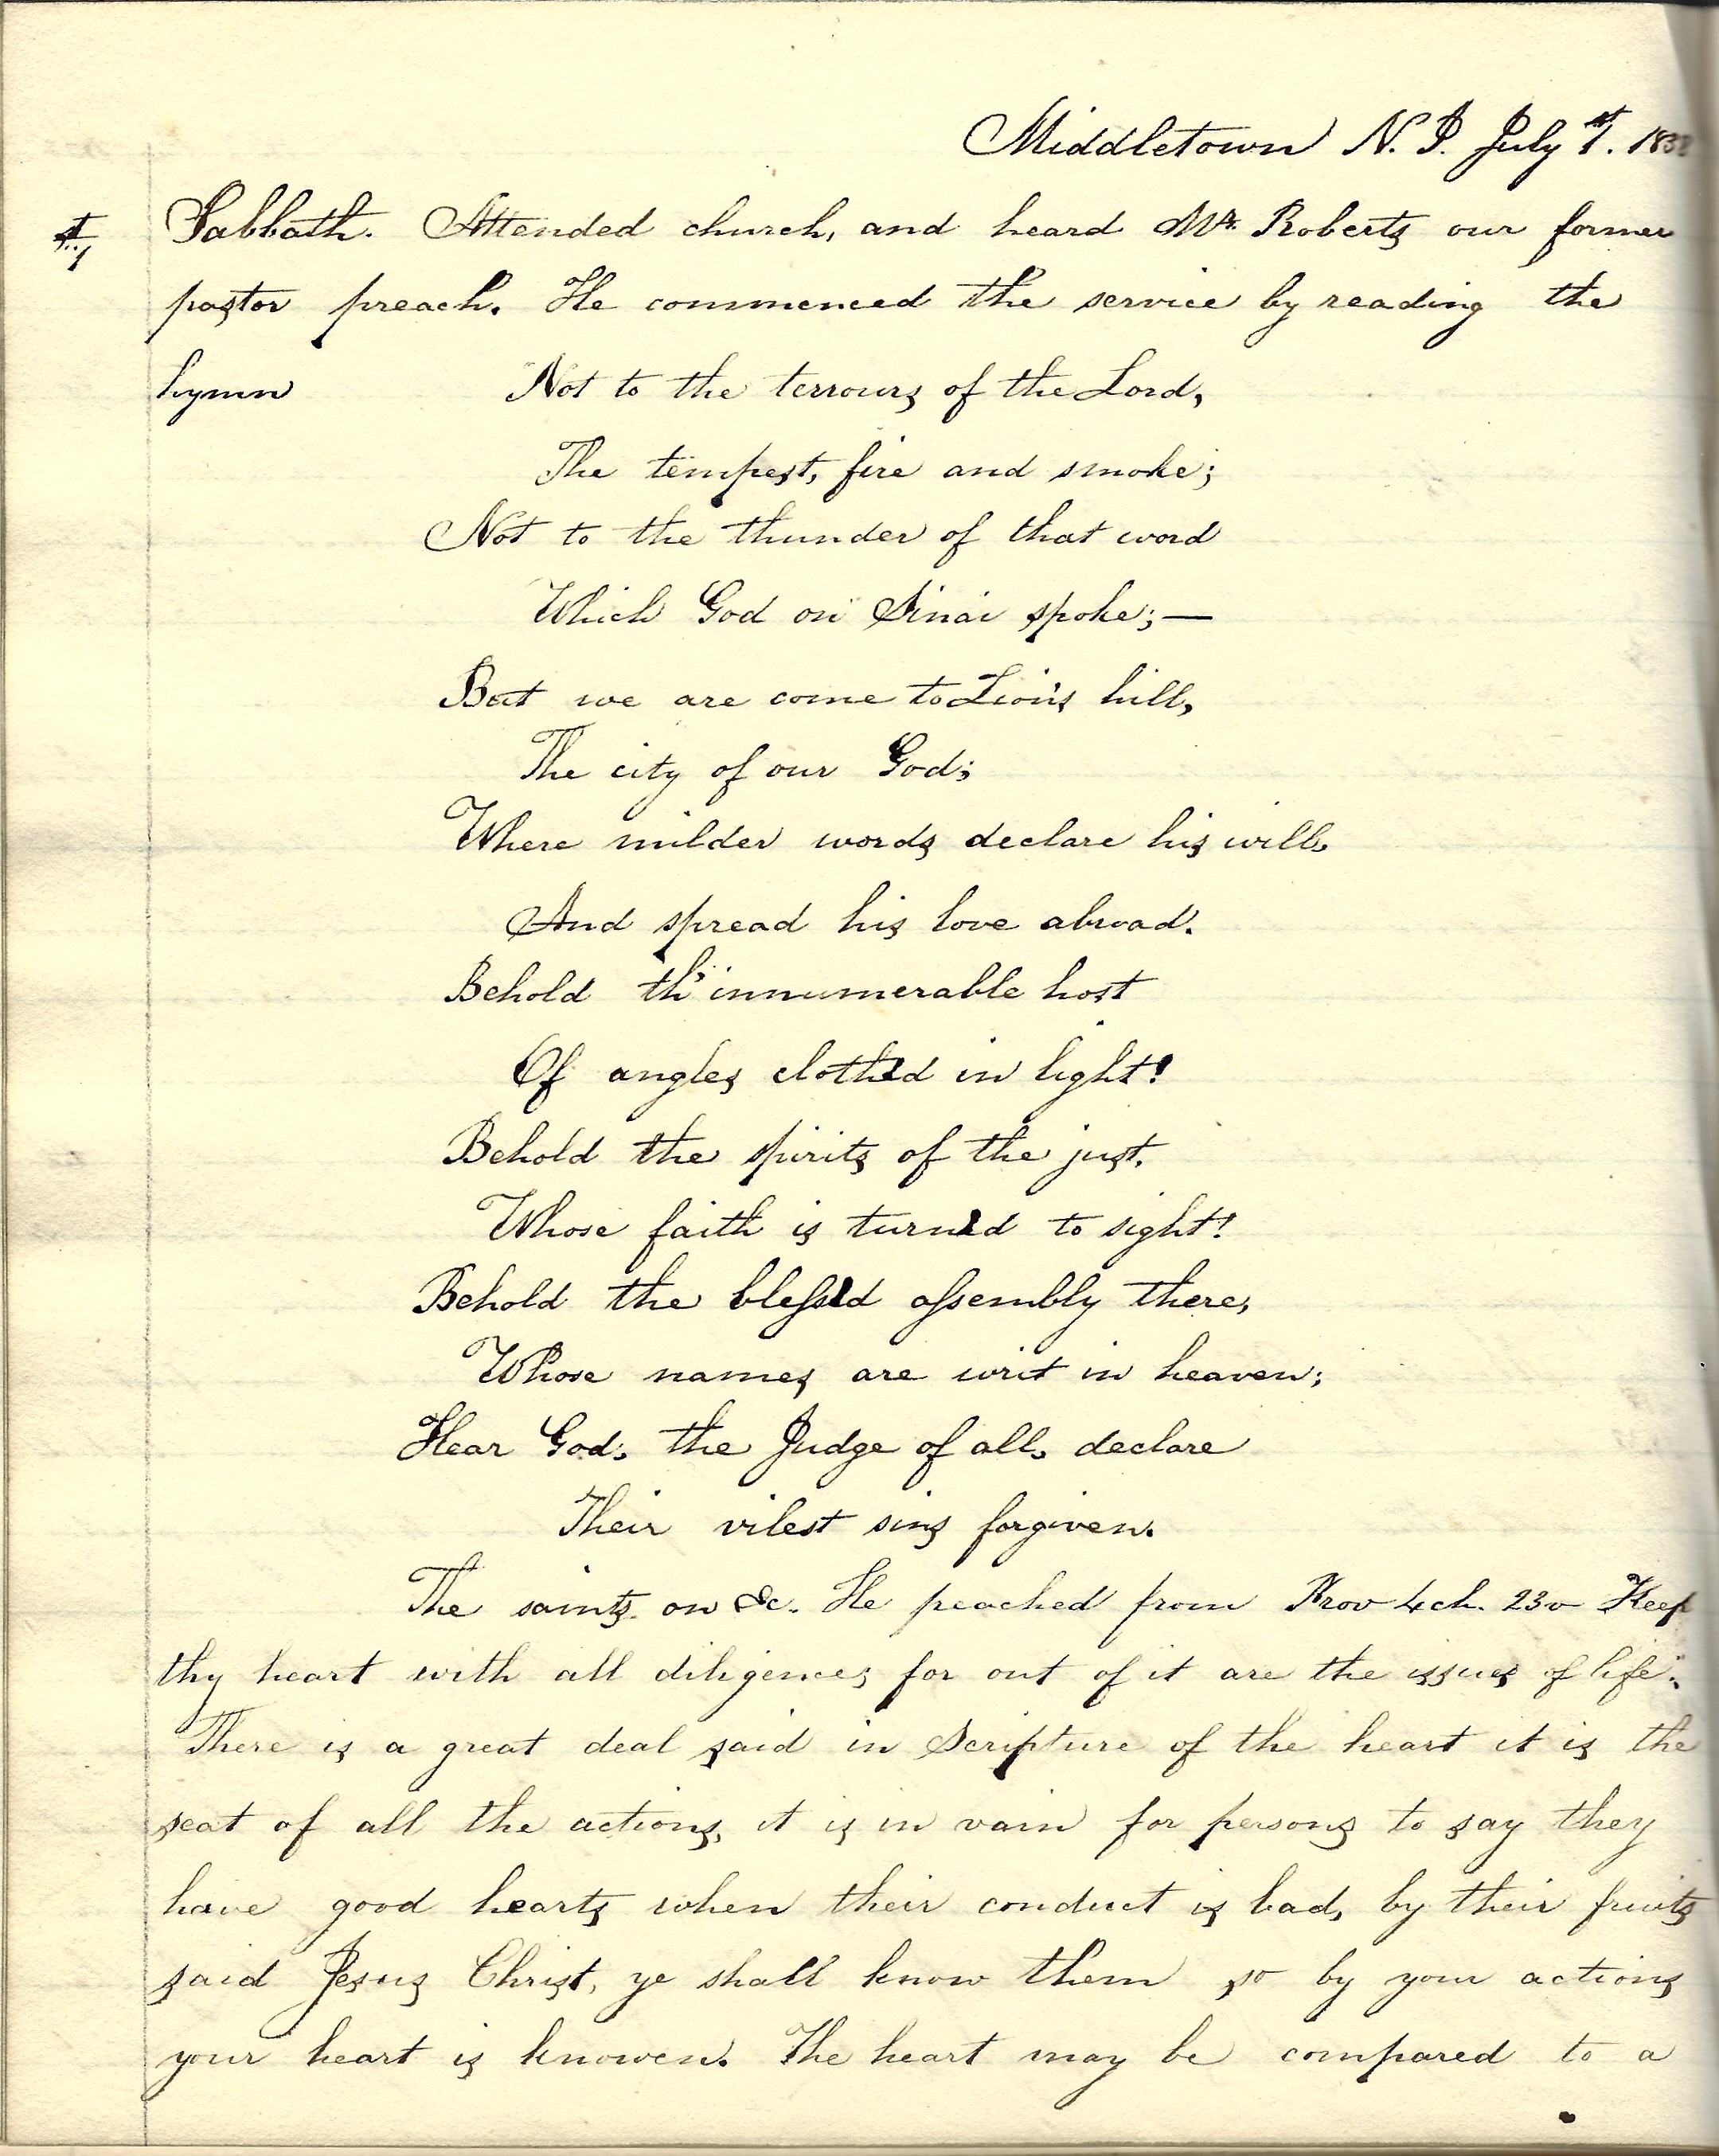 Middletown N. J. July 1st. 1838
1 Sabbath. Attended church, and heard Mr. Roberts our former
pastor preach. He commenced the service by reading the
hymn Not to the terrours of the Lord,
The tempest, fire and smoke;
Not to the thunder of that word
Which God on Sinai spoke; —
But we are come to Zion's hill,
The city of our God;
Where milder words declare his will,
And spread his love abroad.
Behold th' innumerable host
Of angles clothed in light!
Behold the spirits of the just,
Whose faith is turned to sight!
Behold the blessed assembly there,
Whose names are writ in heaven;
Hear God, the Judge of all, declare
Their vilest sins forgiven.
The saints on &c. He preached from Prov 4ch. 23v Keep
thy heart with all diligence; for out of it are the issues of life".
There is a great deal said in Scripture of the heart it is the
seat of all the actions, it is in vain for persons to say they
have good hearts when their conduct is bad, by their fruits
said Jesus Christ, ye shall know them so by your actions
your heart is knowen. The heart may be compared to a